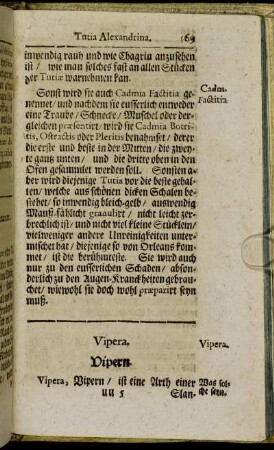 Tutia Alexandrina. 69
inwendig rauh und wie Chagrin anzusehen
ist / wie man solches fast an allen Stücken
der Tutiæ warnehmen kan.
Sonst wird sie auch Cadmia Factitia ge-
nennet / und nachdem sie eusserlich entweder
eine Traube / Schnecke / Muschel oder der-
gleichen præsentirt / wird sie Cadmia Botri-
tis, Ostractis oder Pleritis benahmset / derer
die erste und beste in der Mitten / die zwey-
te gantz unten / und die dritte oben in den
Ofen gesammlet werden soll. Sonsten a-
ber wird diejenige Tutia vor die beste gehal-
ten / welche aus schönen dicken Schalen be-
stehet / so inwendig bleich-gelb / auswendig
Mauß-fählicht granulirt / nicht leicht zer-
brechlich ist / und nicht viel kleine Stücklein /
vielweniger andere Unreinigkeiten unter-
mischet hat / diejenige so von Orleans kom-
met / ist die berühmteste. Sie wird auch
nur zu den eusserlichen Schäden / abson-
derlich zu den Augen-Kranckheiten gebrau-
chet / wiewohl sie doch wohl præparirt seyn
muß.
Cadm.
Factitia
Vipera.
Vipera.
Vipern.
Vipera, Vipern / ist eine Arth einer
Was sol-
che seyn.
uu 5
Slan-